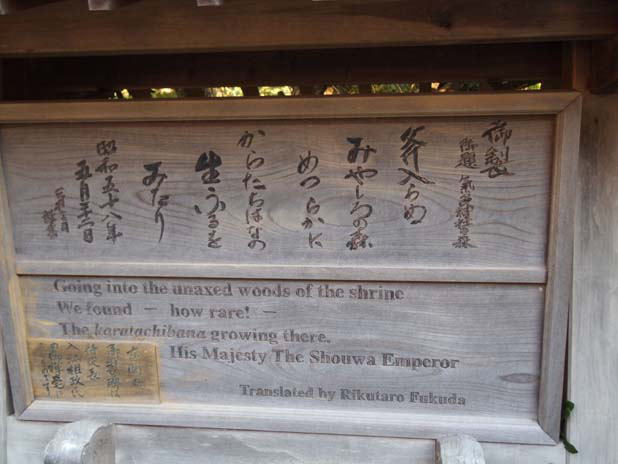 御製
御題 気多神社の森
斧入らぬ
みやしろの森
めつらかに
からたちはなの
生ふるを
みたり
昭和五十八年
五月二十二日
Going into the unaxed woods of the shrine
We found — how rare! —
The karatachibana growing there.
His Majesty The Shouwa Emperor
Translated by Rikutaro Fukuda
入江相政